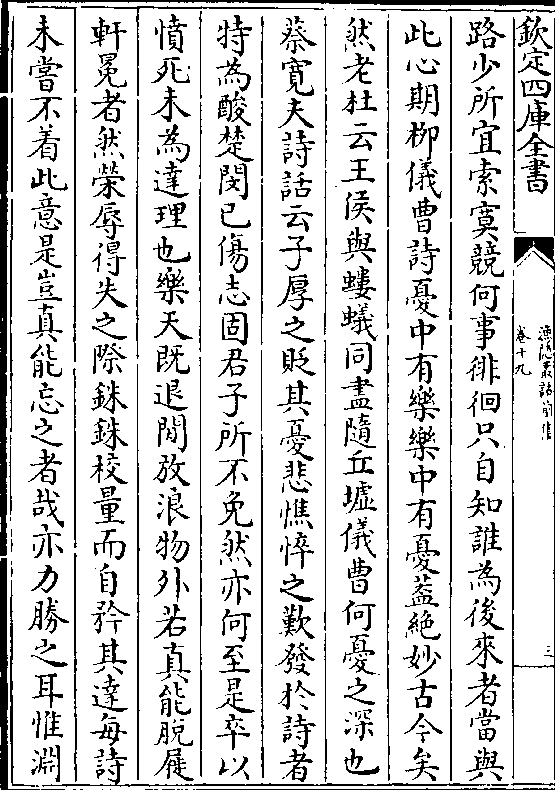 欽定四庫全書
漁隱叢話前集
卷十九
三
路少所宜索寞競何事徘徊只自知誰為後來者當與
此心期栁儀曹詩憂中有樂樂中有憂葢絶妙古今矣
然老杜云王侯與螻蟻同盡隨丘墟儀曹何憂之深也
蔡寛夫詩話云子厚之貶其憂悲憔悴之歎發於詩者
特為酸楚閔已傷志固君子所不免然亦何至是卒以
憤死未為達理也樂天既退閒放浪物外若真能脱屣
軒冕者然榮辱得失之際銖銖校量而自矜其達每詩
未嘗不着此意是豈真能忘之者哉亦力勝之耳惟淵